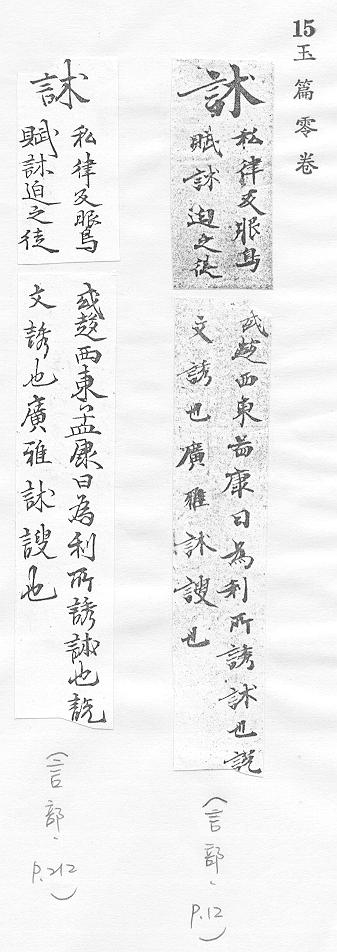 15
玉篇零卷
訹
私律反服鳥
賦訹迫之徒
或趍西東孟康曰為利所誘訹也説
文誘也廣雅訹謏也
(言部、P.12)
訹
私律反服鳥
賦訹迫之徒
或趍西東孟康曰為利所誘訹也説
文誘也廣雅訹謏也
(言部、P.212)